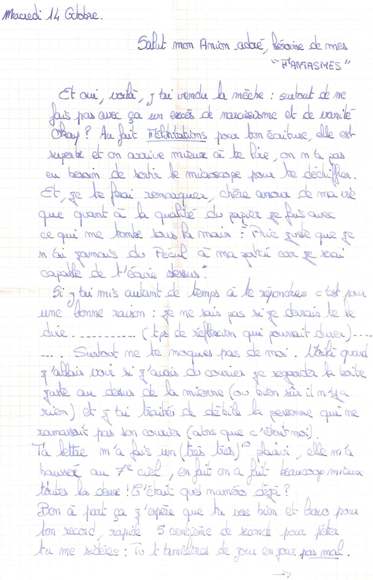 Mercredi 14 Octobre.
Salut mon Amien adoré, héroïne de mes
"FANTASMES"
Et oui, voilà, j't'ai vendu la mèche : surtout de ne
fais pas avec ça un excès de narcissisme et de vanité
Okay? Au fait Félicitations pour ton écriture, elle est
superbe et on arrive mieux à te lire, on n'a pas
eu besoin de sortir le microscope pour te déchiffrer.
Et, je te ferai remarquer, chère amour de ma vie
que quant à la qualité du papier je fais avec
ce qui me tombe sous la main : Prie juste que je
n'ai jamais du Pécul à ma portée car je serai
capable de t'écrire dessus.
Si j't'ai mis autant de temps à te répondre c'est pour
une bonne raison : je ne sais pas si je devrais te le
dire ............ (tps de réflexion qui pourrait durer) ....
.... Surtout ne te moques pas de moi.. Voilà quand
j'allais voir si j'avais du courrier je regardais la boîte
juste au dessus de la mienne (ou bien sûr il n'y a
rien) et j'ai traités de débile la personne qui ne
ramassait pas son courrier (alors que c'était moi).
Ta lettre m'a fais un (très très) plaisir, elle m'a
au 7e ciel, en fait on a fait beaucoup mieux
toutes les deux! C'était quel numéro déjà?
Bon à part ça j'espère que tu vas bien et bravo pour
ton record, rapide 5 centième de seconde pour
tu me sidères : Tu t'améliores de jour en jour pas mal.